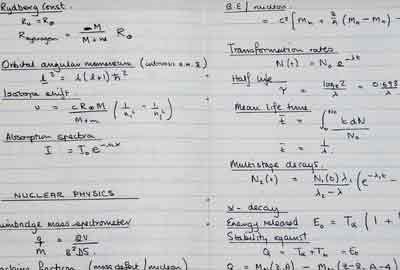 Rydberg Const.
R∞ = R∞
R_hydrogen = M / (M+m) R∞
Orbital angular momentum
l² = l(l+1)ħ²
Isotope shift.
υ = cR∞M / (M+m) (1/n₁² - 1/n₂²)
Absorption spectra
I = I₀e
NUCLEAR PHYSICS
mass spectrometer
q/m = 2V / B²
fraction (mass defect / nucleon)
B.E / nucleon
= c² [Mn + Z/A (MH - Mn) -
Transformation rates
N(t) = N₀ e^-λt
Half life
τ = loge2 / λ = 0.693
Mean life time
t̄ = ∫ t dN / N₀
t̄ = 1/λ
Multistage decays.
N₂(t) = N₁(0) λ₁ / (λ₂ - λ) (e^-λ₁t -
α - decay
Energy released E₀ = Tα (1 +
Stability against
Q = Tα + Tb = E₀
Q = (Z, A) - (Z-2, A-4)